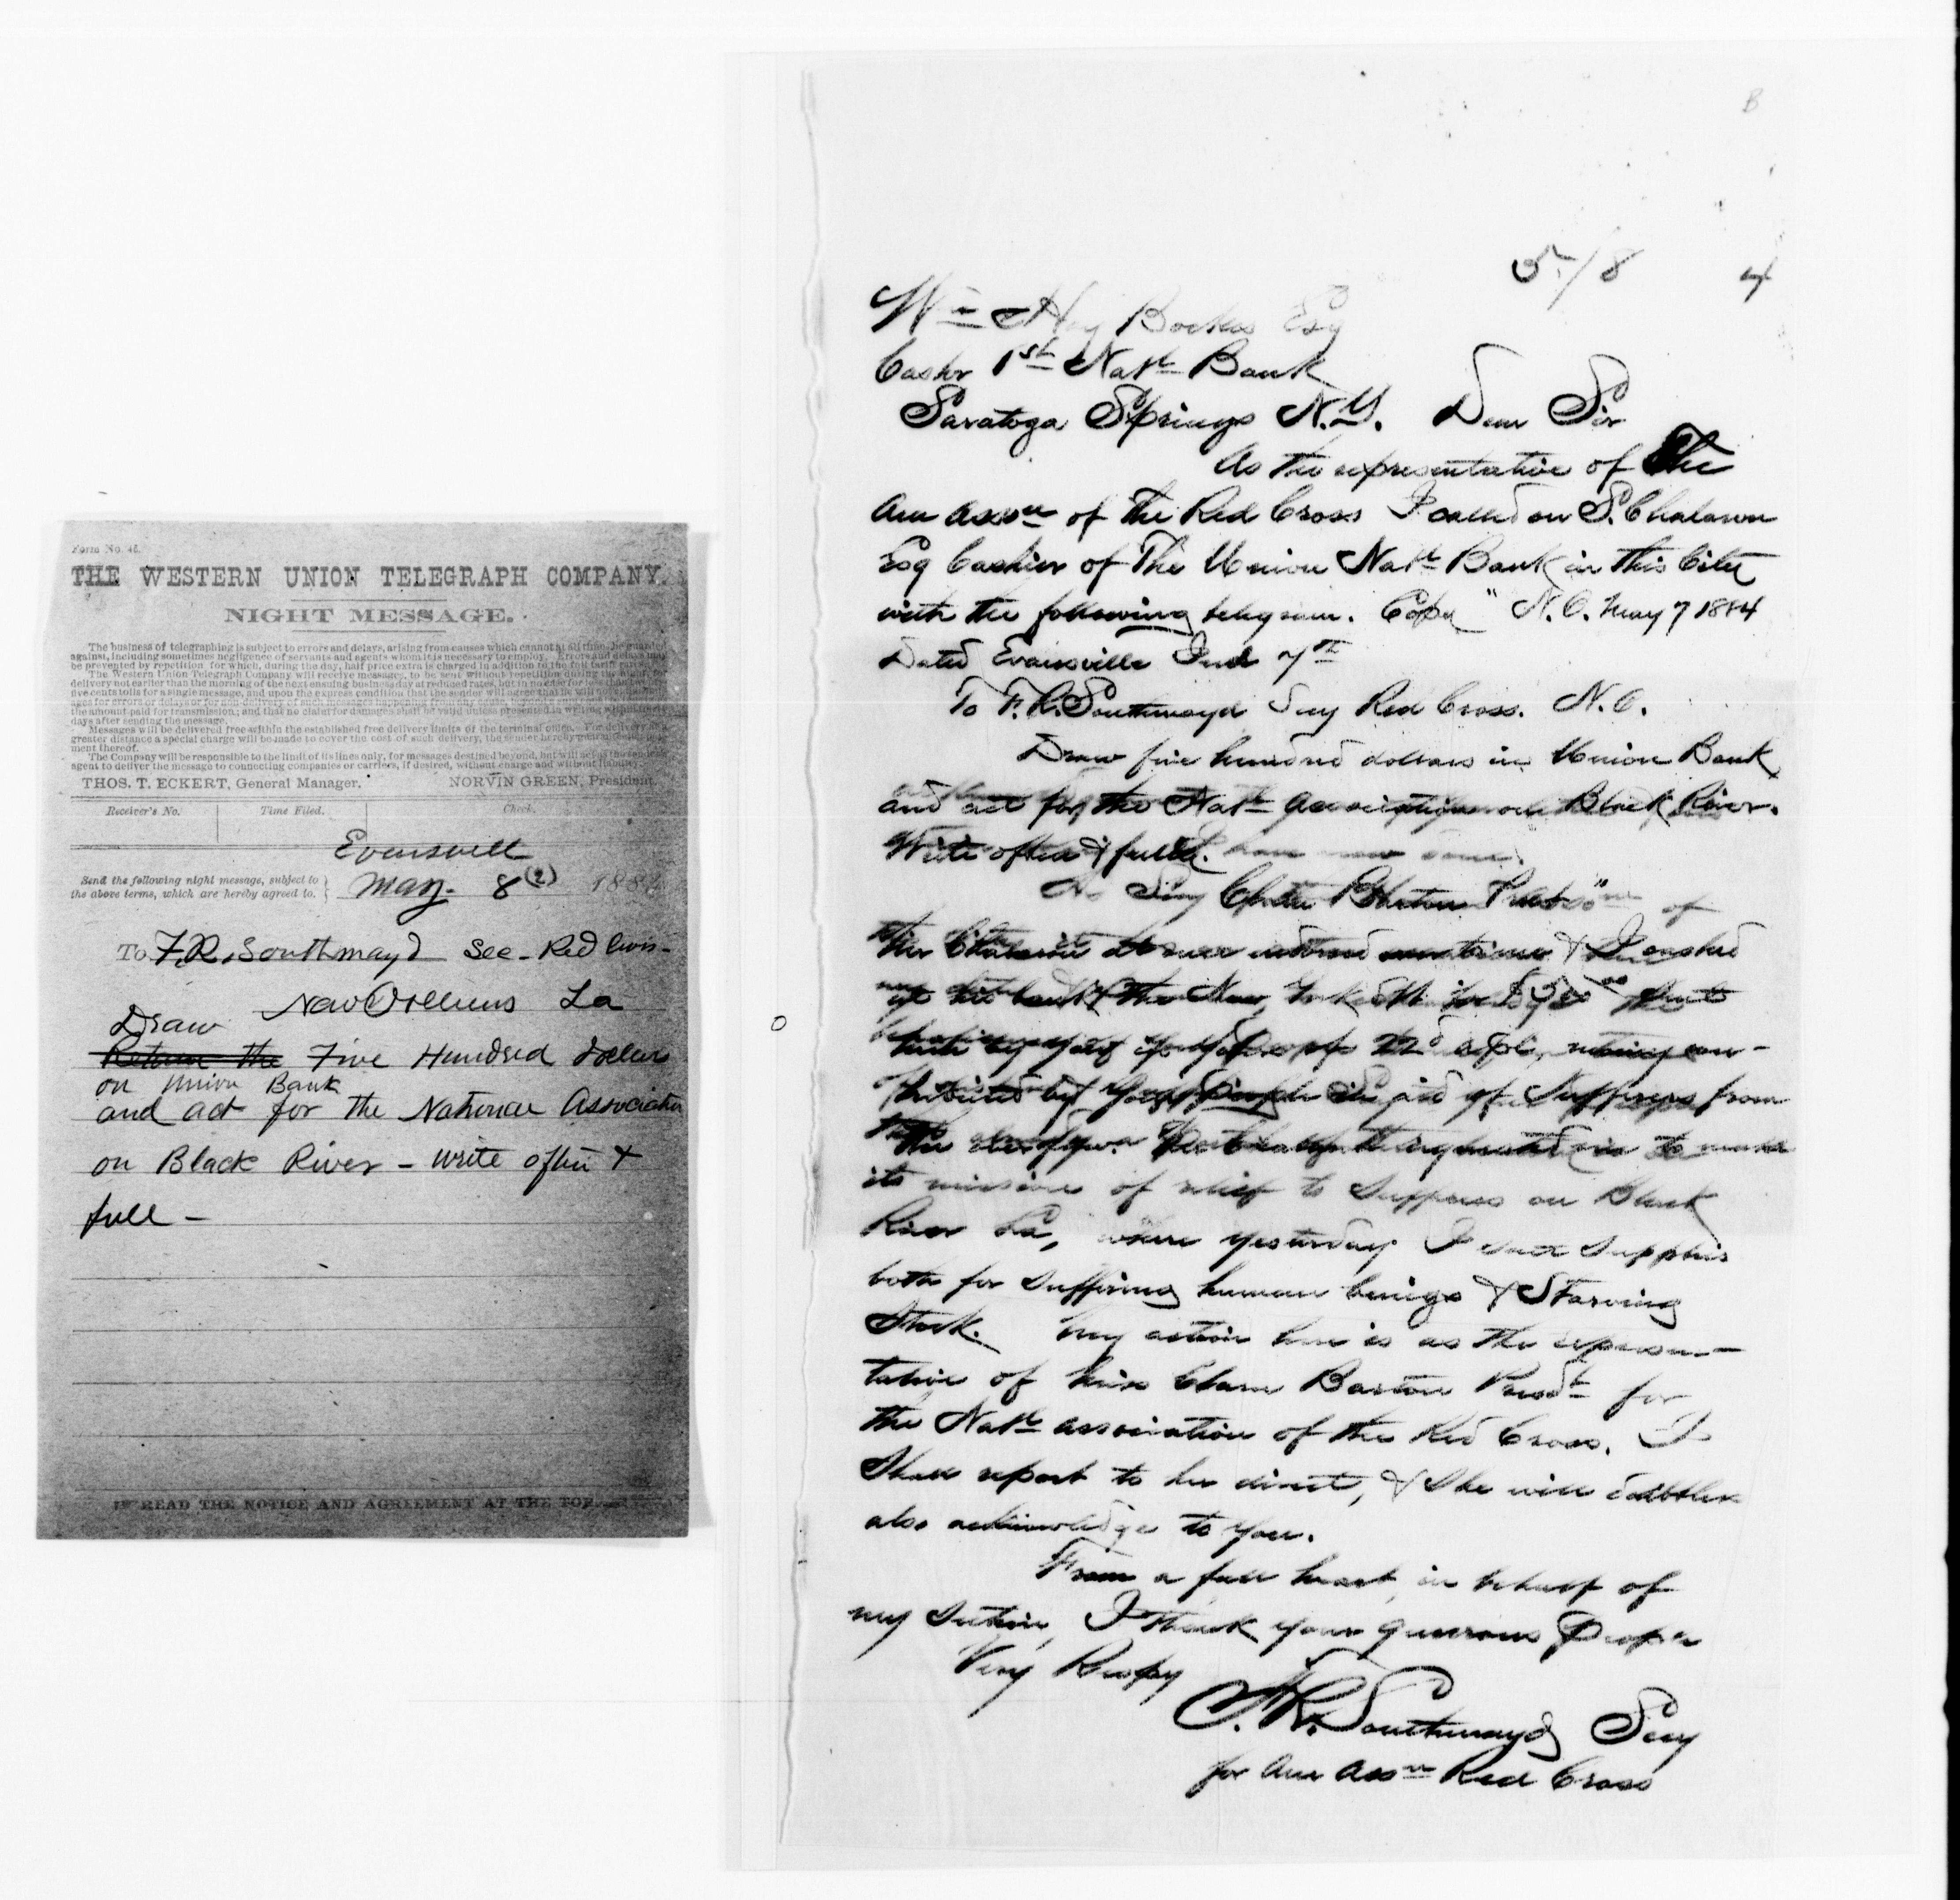 Form No. 48.
THE WESTERN UNION TELEGRAPH COMPANY.
NIGHT MESSAGE.
The business of telegraphing is subject to errors and delays, arising from causes which cannot at all times be guarded
against, including sometimes negligence of servants and agents whom it is necessary to employ. Errors and delays may
be prevented by repetition, for which, during the day, half price extra is charged in addition to the full tariff rates.
The Western Union Telegraph Company will receive messages, to be sent without repetition during the night, for
delivery not earlier than the morning of the next ensuing business day, at reduced rates, but in no case for less than
five cents tolls for a single message, and upon the express condition that the sender will agree that he will not
ages for errors or delays or for non-delivery of such messages happening from any cause,
the amount paid for transmission; and that no claim for damages shall be valid unless presented in writing within
days after sending the message.
Messages will be delivered free within the established free delivery limits of the terminal office. For delivery at a
greater distance a special charge will be made to cover the cost of such delivery, the sender hereby
ment thereof.
The Company will be responsible to the limit of its lines only, for messages destined beyond, but will act as the sender's
agent to deliver the message to connecting companies or carriers, if desired, without charge and without liability.
THOS. T. ECKERT, General Manager. NORVIN GREEN, President.
Receiver's No. Time Filed. Check.
Evansvill
Send the following night message, subject to
the above terms, which are hereby agreed to. May 8 (2) 188
To F.R. Southmayd Sec - Red Cross -
New Orleans La
Draw
Return the Five Hundred Dollars
on Union Bank
and act for the National Association
on Black River - write often &
full -
READ THE NOTICE AND AGREEMENT AT THE TOP.
B
5/8 4
Wm Hay Bockes Esq
Cashr 1st Natl Bank
Saratoga Springs N.Y. Dear Sir
As the representative of the
Am Assn of the Red Cross I called on S. Chalaron
Esq Cashier of The Union Natl Bank in this City
with the following telegram. Copy " N.O. May 7 1884
Dated Evansville Ind 7th
To F.R. Southmayd Secy Red Cross. N.O.
Draw five hundred dollars in Union Bank
and act for the Natl Association on Black River.
Write often & full.
Clara Barton
& I cashed
at his bank the New York
by your people
by your people in aid of Sufferers from
the overflow.
its missions of relief to Sufferers on Black
River La, where yesterday I sent Supplies
both for Suffering human beings & Starving
Stock. My action here is as the represen-
tative of Miss Clara Barton Presdt for
the Natl association of the Red Cross. I
Shall report to her direct, & She will doubtless
also acknowledge to you.
From a full heart in behalf of
my Section, I thank your generous People
Very Respy
F.R. Southmayd Secy
for Am Assn Red Cross